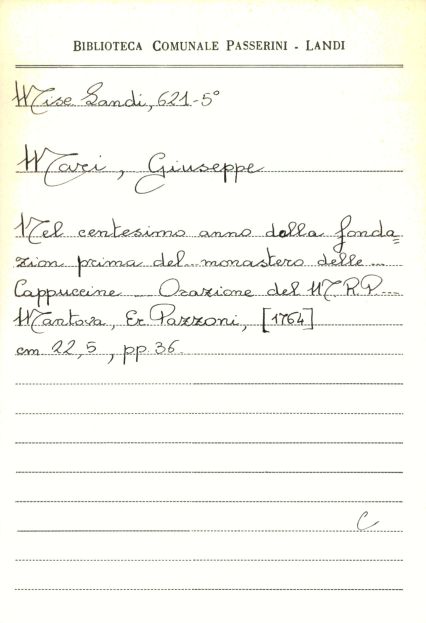 BIBLIOTECA COMUNALE PASSERINI - LANDI
Misc Landi, 621-5°
Mari, Giuseppe
Nel centesimo anno della fonda=
zion prima del monastero delle ...
Cappuccine ... Orazione del M.R.P. ...
Mantova, Er. Pazzoni, [1764]
cm. 22,5, pp. 36
C